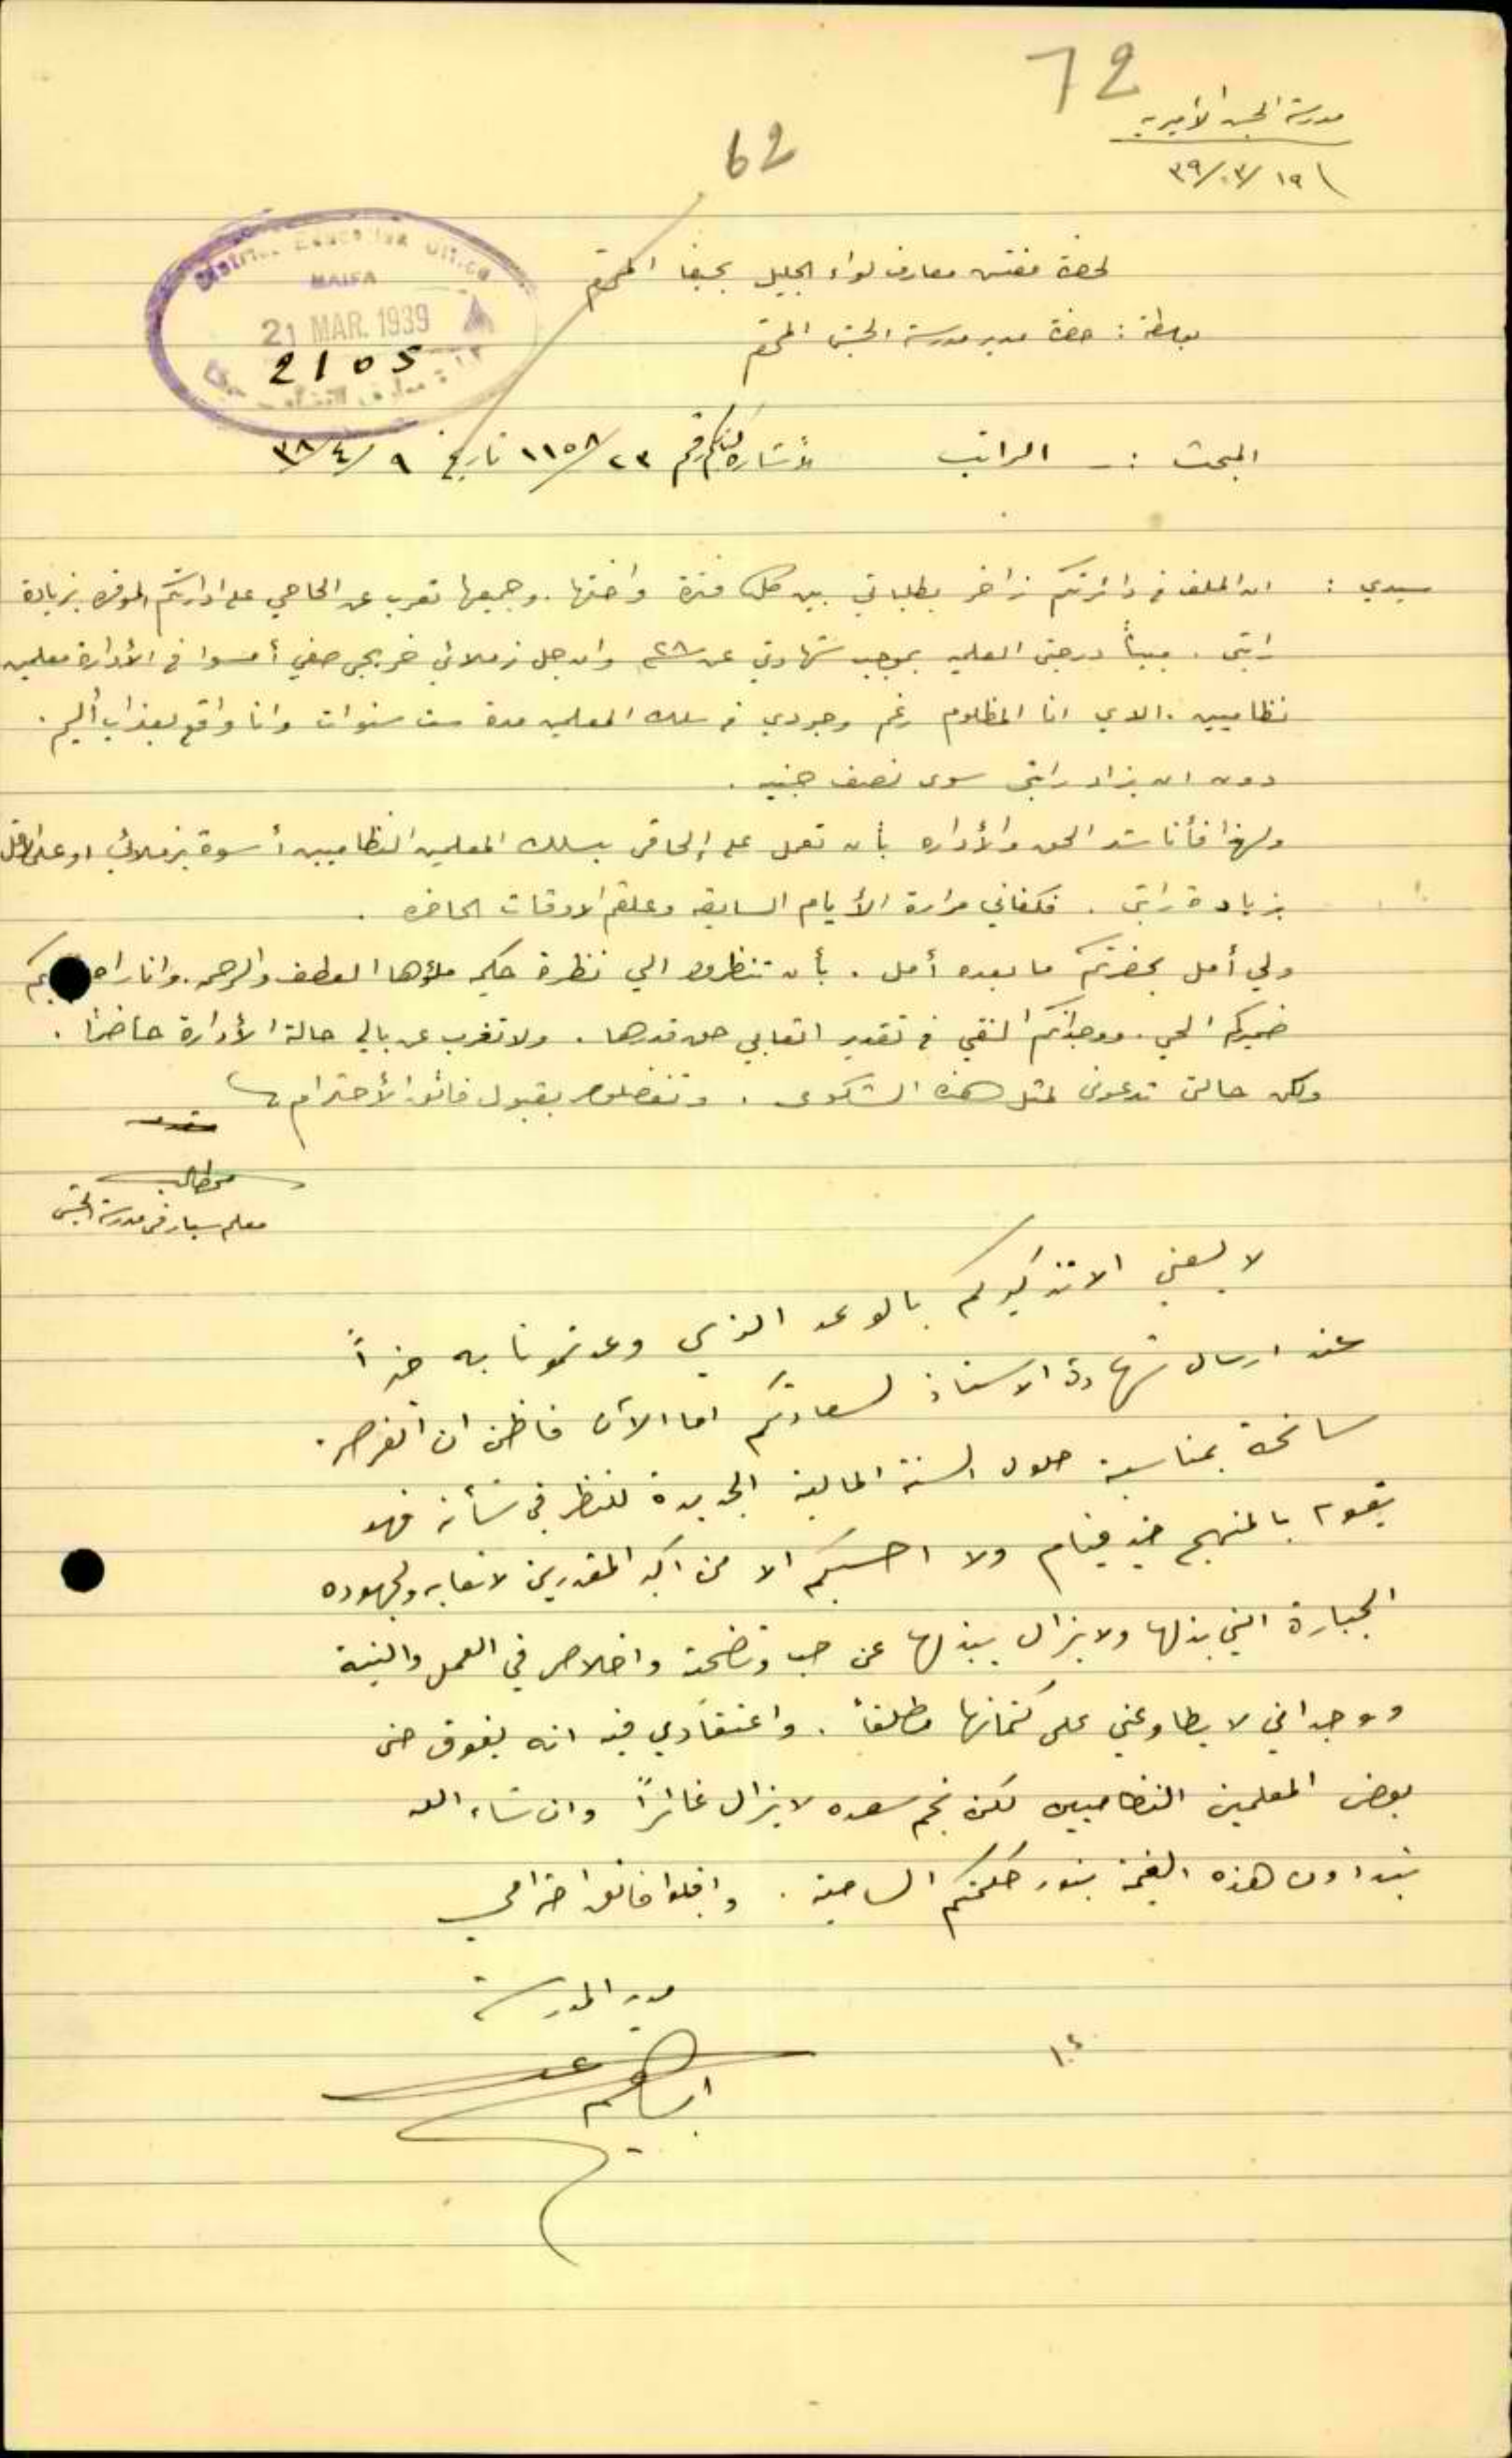 72
مدرسة الجش الأميرية
١٩/٣/٣٩
62
لحضرة مفتش معارف لواء الجليل بحيفا المحترم
بواسطة: حضرة مدير مدرسة الجش المحترم
District Education Office
HAIFA
21 MAR. 1939
2105
المبحث :- الراتب لأشارة كتابكم رقم ٢٣/١١٥٨ تاريخ ٩/٤/٣٨
سيدي : ان الملف في دائرتكم زاخر بطلباتي بين كل فترة واختها. وجميعها تعرب عن الحاحي على ادارتكم الموقرة بزيادة
راتبي. مبيناً درجتي العلمية بموجب شهادتي عن وان جل زملائي خريجي صفي أمسوا في الأدارة معلمين
نظاميين. الاي انا المظلوم رغم وجودي في سلك المعلمين مدة ست سنوات وانا واقع بعذاب أليم.
دون ان يزاد راتبي سوى نصف جنيه.
ولهذا فأناشد الحق والأدارة بأن تعمل على إلحاقي بسلك المعلمين النظاميين أسوة بزملائي او على الاقل
بزيادة راتبي. فكفاني مرارة الأيام السابقة وعلقم الاوقات الحاضرة.
ولي أمل بحضرتكم ما بعده أمل. بأن تنظروا الي نظرة حكيم ملؤها العطف والرحمة. وانا
ضميركم الحي. ووجدانكم النقي في تقدير اتعابي حق قدرها. ولا تغرب عن بالي حالة الأدارة حاضراً.
ولكن حالتي تدعوني لمثل هذه الشكوى. وتفضلوا بقبول فائق الأحترام
معلم سيار في مدرسة الجش
لا يسعني الا تذكيركم بالوعد الذي وعدتمونا به خيراً
عند ارسال شهادة الاستاذ لسعادتكم اما الآن فاظن ان الفرصة
سانحة بمناسبة حلول السنة المالية الجديدة للنظر في شأنه فهو
يقوم بالمنهج خير قيام ولا احسبكم الا من اكبر المقدرين لاتعابه ولجهوده
الجبارة التي بذلها ولا يزال يبذلها عن حب وتضحية واخلاص في العمل والنية
ووجداني لا يطاوعني على كتمانها مطلقاً. واعتقادي فيه انه يفوق حتى
بعض المعلمين النظاميين لكن نجم سعده لا يزال غائراً وان شاء الله
هذه الغيمة بنور حكمتكم السامية. واقبلوا فائق احترامي
مدير المدرسة
ابراهيم